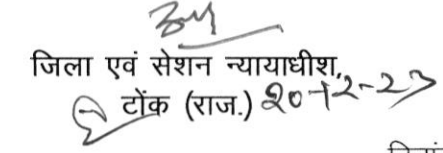 जिला एवं सेशन न्यायाधीश,
टोंक (राज.) 20-12-23